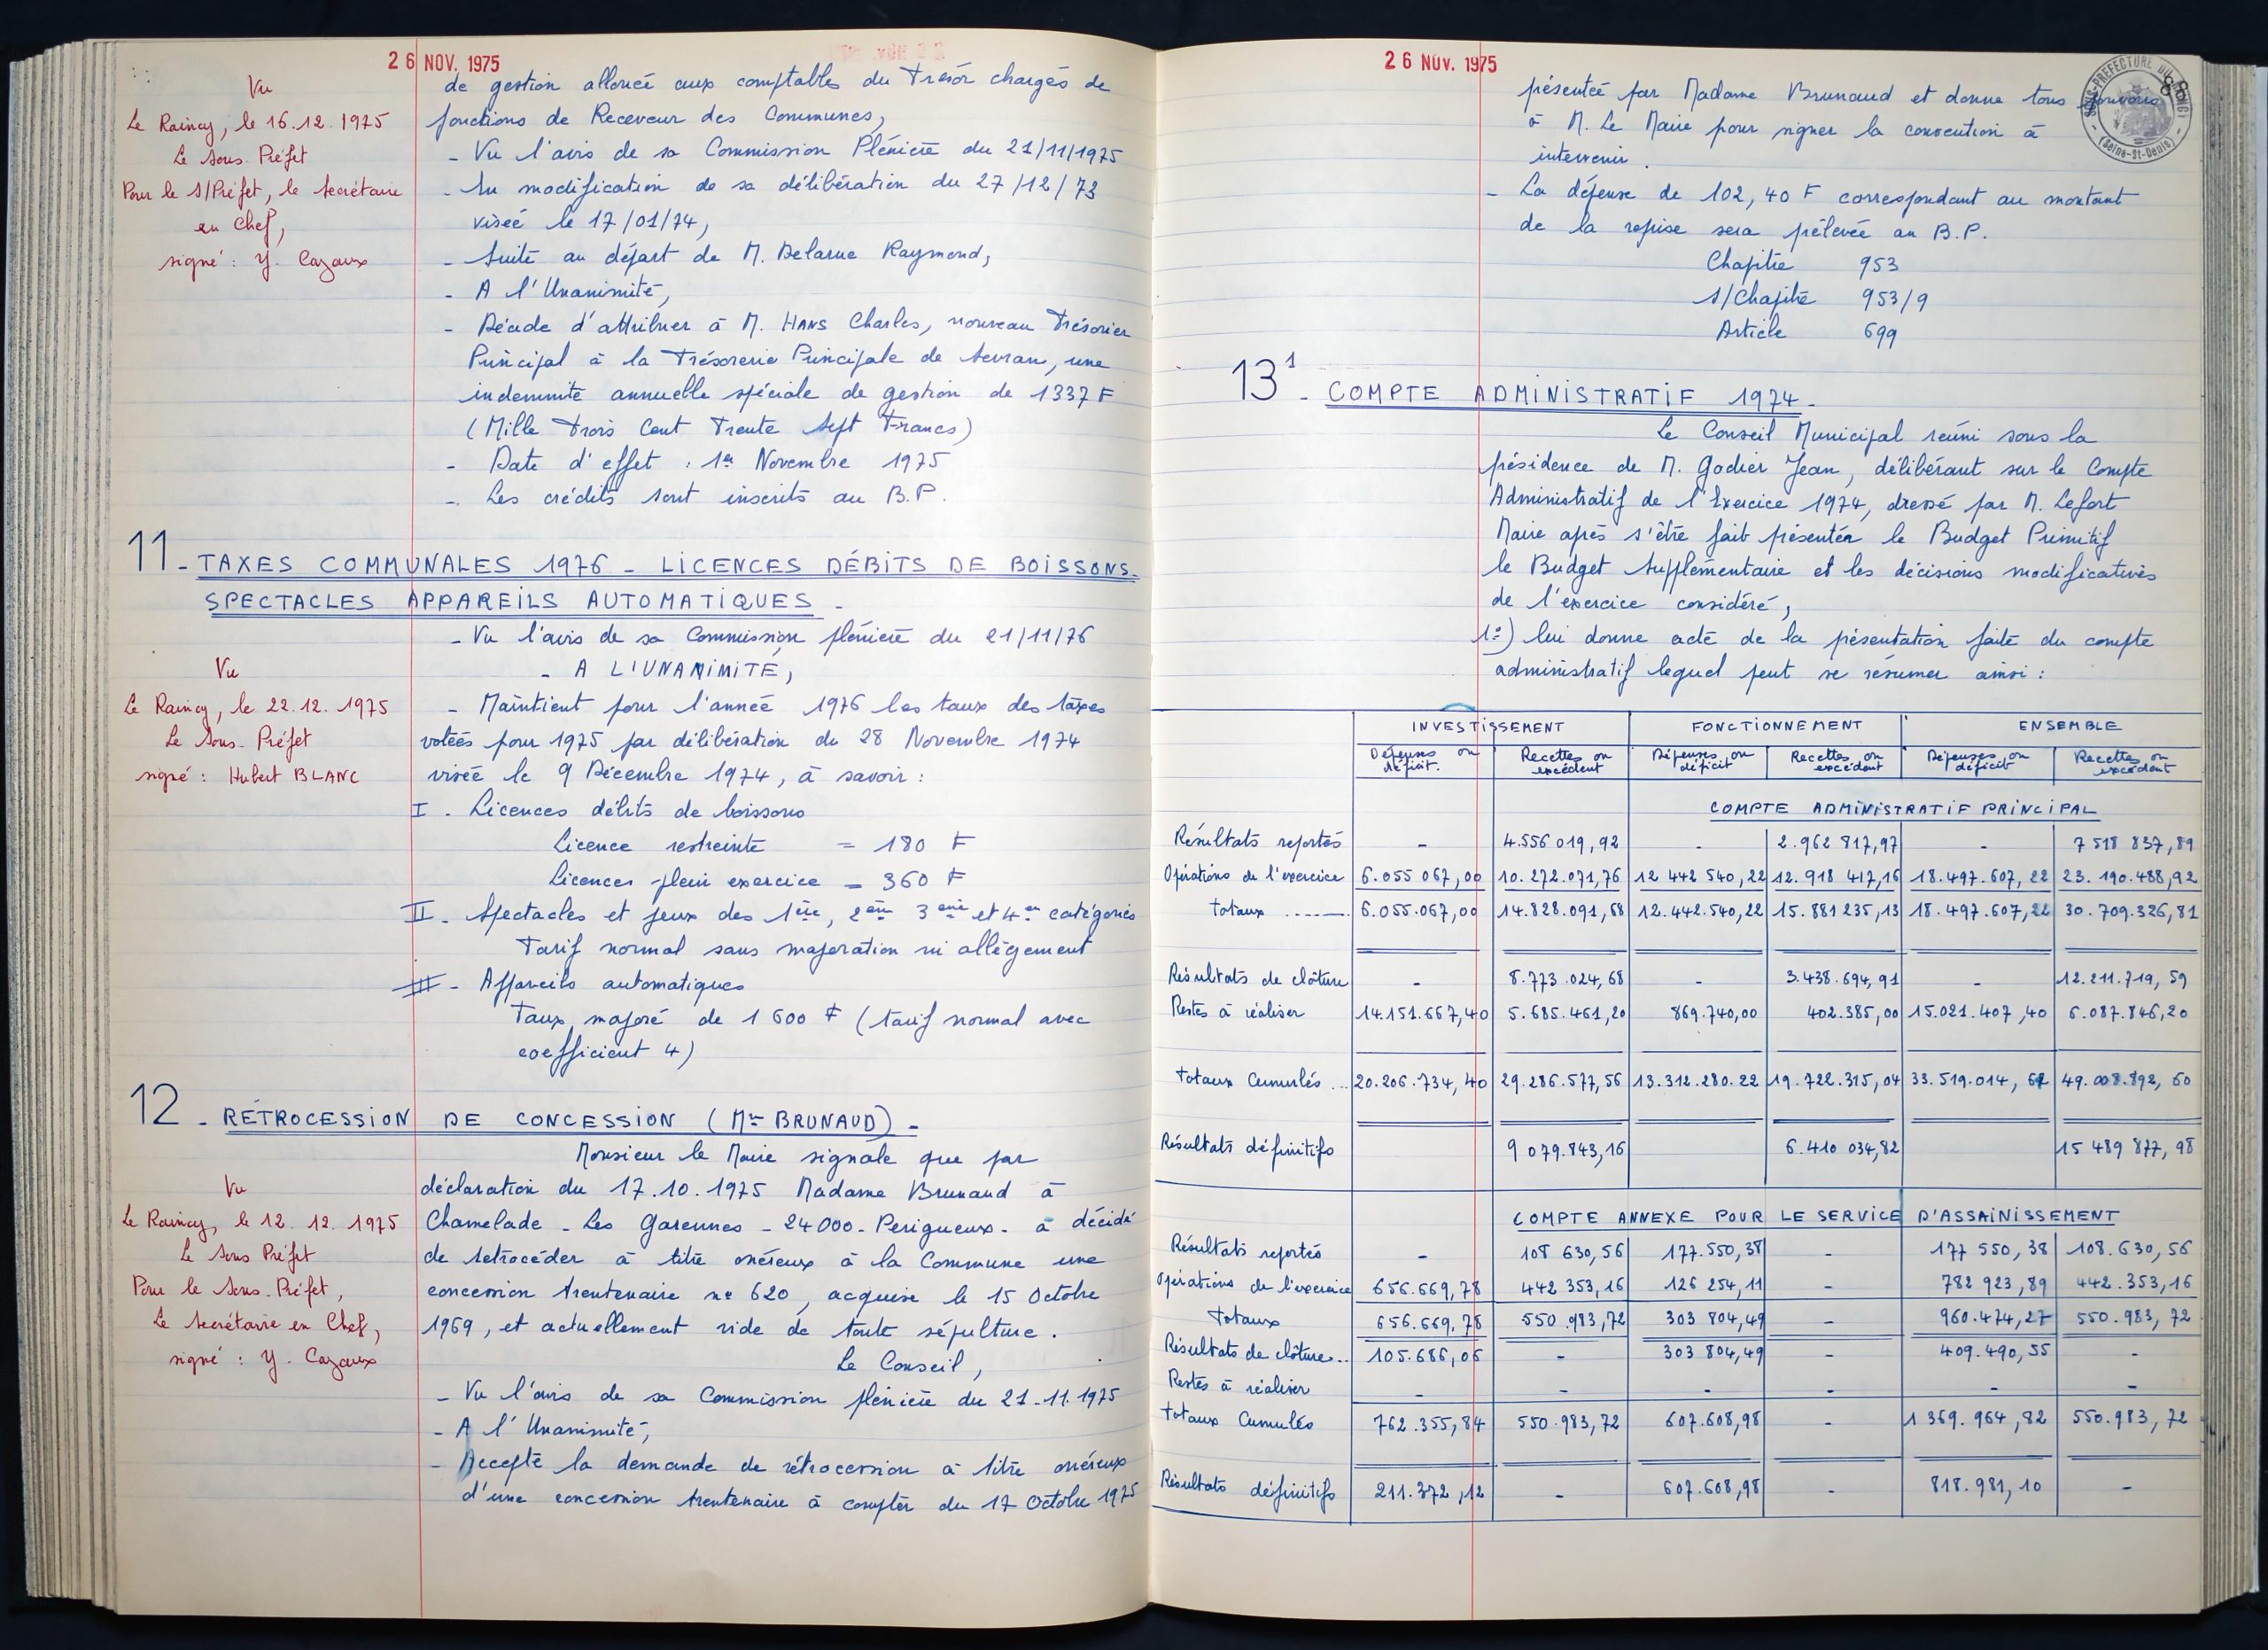 26 NOV. 1975
Vu
Le Raincy, le 16.12.1975
Le Sous-Préfet
Pour le S/Préfet, le Secrétaire
en Chef,
signé : Y. Cazaux
de gestion alloué aux comptables du Trésor chargés de
fonctions de Receveur des Communes,
- Vu l'avis de sa Commission Plénière du 21/11/1975
- En modification de sa délibération du 27/12/73
visée le 17/01/74,
- Suite au départ de M. Delarue Raymond,
- A l'Unanimité,
- Décide d'attribuer à M. HANS Charles, nouveau Trésorier
Principal à la Trésorerie Principale de Sevran, une
indemnité annuelle spéciale de gestion de 1337 F
(Mille Trois Cent Trente Sept Francs)
- Date d'effet : 1er Novembre 1975
- Les crédits sont inscrits au B.P.
11 - TAXES COMMUNALES 1976 - LICENCES DÉBITS DE BOISSONS -
SPECTACLES APPAREILS AUTOMATIQUES -
- Vu l'avis de sa Commission plénière du 21/11/76
- A L'UNANIMITÉ,
Vu
Le Raincy, le 22.12.1975
Le Sous-Préfet
signé : Hubert BLANC
- Maintient pour l'année 1976 les taux des taxes
votées pour 1975 par délibération du 28 Novembre 1974
visée le 9 Décembre 1974, à savoir :
I - Licences débits de boissons
Licence restreinte = 180 F
Licences plein exercice = 360 F
II - Spectacles et jeux des 1ère, 2ème 3ème et 4ème catégories
Tarif normal sans majoration ni allègement
III - Appareils automatiques
Taux majoré de 1 600 F (tarif normal avec
coefficient 4)
12 - RÉTROCESSION DE CONCESSION (Me BRUNAUD) -
Vu
Le Raincy, le 12.12.1975
Le Sous Préfet
Pour le Sous-Préfet,
Le Secrétaire en Chef,
signé : Y. Cazaux
Monsieur le Maire signale que par
déclaration du 17.10.1975 Madame Brunaud à
Chamelade - Les Garennes - 24000 - Perigueux - a décidé
de retrocéder à titre onéreux à la Commune une
concession trentenaire n° 620, acquise le 15 Octobre
1969, et actuellement vide de toute sépulture.
Le Conseil,
- Vu l'avis de sa Commission plénière du 21-11.1975
- A l'Unanimité,
- Accepte la demande de rétrocession à titre onéreux
d'une concession trentenaire à compter du 17 Octobre 1975
26 NOV. 1975
SOUS-PREFECTURE DU RAINCY
(Seine-St-Denis)
présentée par Madame Brunaud et donne tous pouvoirs
à M. Le Maire pour signer la convention à
intervenir.
- La dépense de 102,40 F correspondant au montant
de la reprise sera prélevée au B.P.
Chapitre 953
S/Chapitre 953/9
Article 699
13¹ - COMPTE ADMINISTRATIF 1974 -
Le Conseil Municipal réuni sous la
présidence de M. Godier Jean, délibérant sur le Compte
Administratif de l'Exercice 1974, dressé par M. Lefort
Maire après s'être fait présenter le Budget Primitif
le Budget Supplémentaire et les décisions modificatives
de l'exercice considéré,
1°) lui donne acte de la présentation faite du compte
administratif lequel peut se résumer ainsi :
INVESTISSEMENT FONCTIONNEMENT ENSEMBLE
Dépenses ou déficit. Recettes ou excédent Dépenses ou déficit Recettes ou excédent Dépenses ou déficit Recettes ou excédent
COMPTE ADMINISTRATIF PRINCIPAL
Résultats reportés - 4.556 019,92 - 2.962 817,97 - 7 518 837,89
Opérations de l'exercice 6.055 067,00 10.272.071,76 12 442 540,22 12.918 417,16 18.497.607,22 23.190.488,92
Totaux ...... 6.055.067,00 14.828.091,68 12.442.540,22 15.881 235,13 18.497.607,22 30.709.326,81
Résultats de clôture - 8.773.024,68 - 3.438.694,91 - 12.211.719,59
Restes à réaliser 14.151.667,40 5.685.461,20 869.740,00 402.385,00 15.021.407,40 6.087.846,20
Totaux Cumulés ... 20.206.734,40 29.286.577,56 13.312.280.22 19.722.315,04 33.519.014,62 49.008.892,60
Résultats définitifs 9 079.843,16 6.410 034,82 15 489 877,98
COMPTE ANNEXE POUR LE SERVICE D'ASSAINISSEMENT
Résultats reportés - 108 630,56 177.550,38 - 177 550,38 108.630,56
Opérations de l'exercice 656.669,78 442 353,16 126 254,11 - 782 923,89 442.353,16
Totaux 656.669,78 550.983,72 303 804,49 - 960.474,27 550.983,72
Résultats de clôtures.. 105.686,06 - 303 804,49 - 409.490,55 -
Restes à réaliser - - - - - -
Totaux Cumulés 762.355,84 550.983,72 607.608,98 - 1 369.964,82 550.983,72
Résultats définitifs 211.372,12 - 607.608,98 - 818.981,10 -